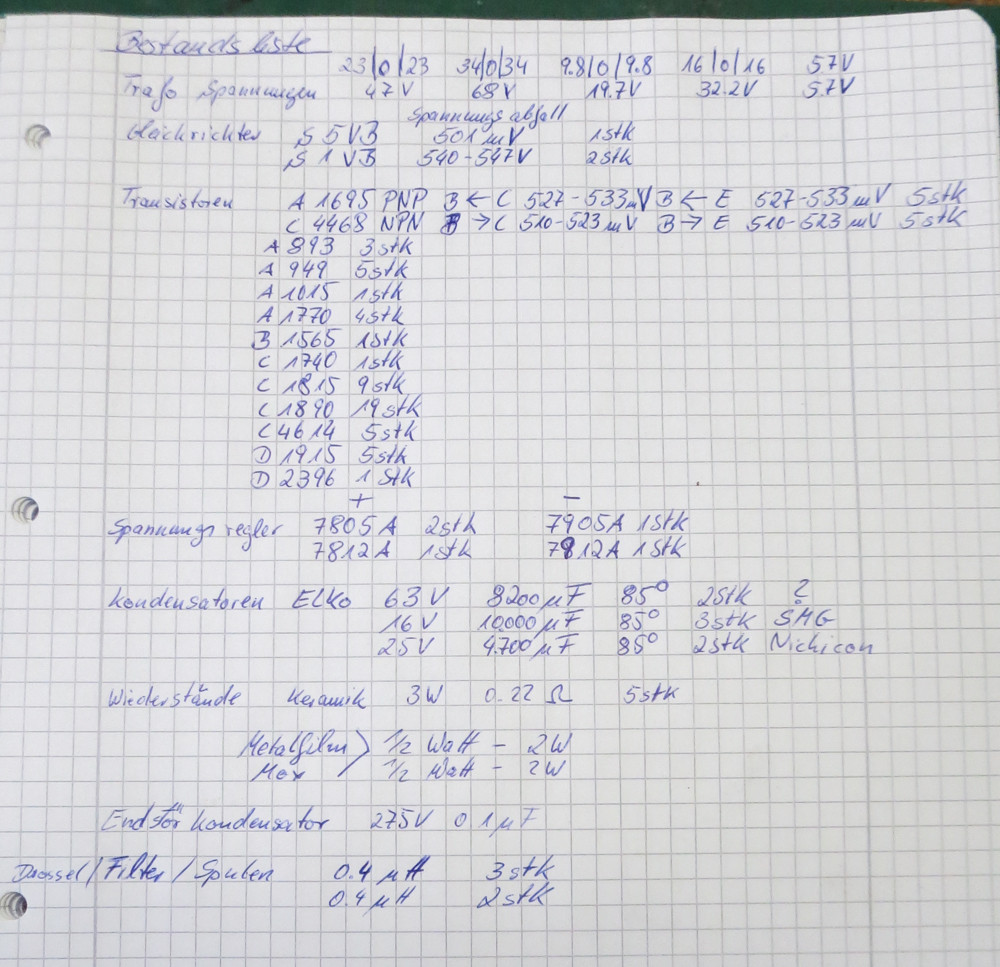 Bestandsliste
23/0/23 34/0/34 9.8/0/9.8 16/0/16 5.7V
Trafo Spannungen 47V 68V 19.7V 32.2V 5.7V
Spannungsabfall
Gleichrichter S5VB 501mV 1stk
S1VB 540-547V 2stk
Transistoren A 1695 PNP B ← C 527-533mV B ← E 527-533mV 5stk
C 4468 NPN B → C 510-523mV B → E 510-523mV 5stk
A 893 3stk
A 949 5stk
A 1015 1stk
A 1770 4stk
B 1565 1stk
C 1740 1stk
C 1815 9stk
C 1890 19stk
C 4614 5stk
D 1915 5stk
D 2396 1stk
+ −
Spannungsregler 7805A 2stk 7905A 1stk
7812A 1stk 7912A 1stk
Kondensatoren ELKO 63V 8200µF 85° 2stk ?
16V 10.000µF 85° 3stk SMG
25V 4.700µF 85° 2stk Nichicon
Wiederstände Keramik 3W 0.22 Ω 5stk
Metalfilm > 1/2 Watt - 2W
Mox 1/2 Watt - 2W
Endstör Kondensator 275V 0.1µF
Drossel/Filter/Spulen 0.4µH 3stk
0.4µH 2stk